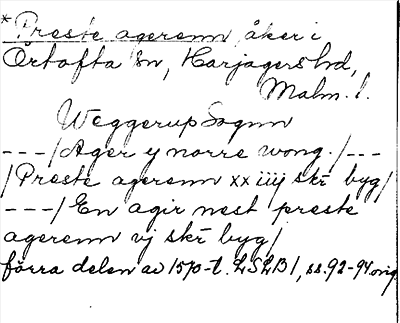 *Preste agerenn, åker i
Örtofta sn, Harjagers hd,
Malm. l.
Weggerup Sognn
---/Ager y norre wong./---
/Preste agerenn xx iiij skr byg/
---/En agir nest preste
agerenn vj skr byg/
förra delen av 1570-t. LSLB1, ss. 92-94 orig.